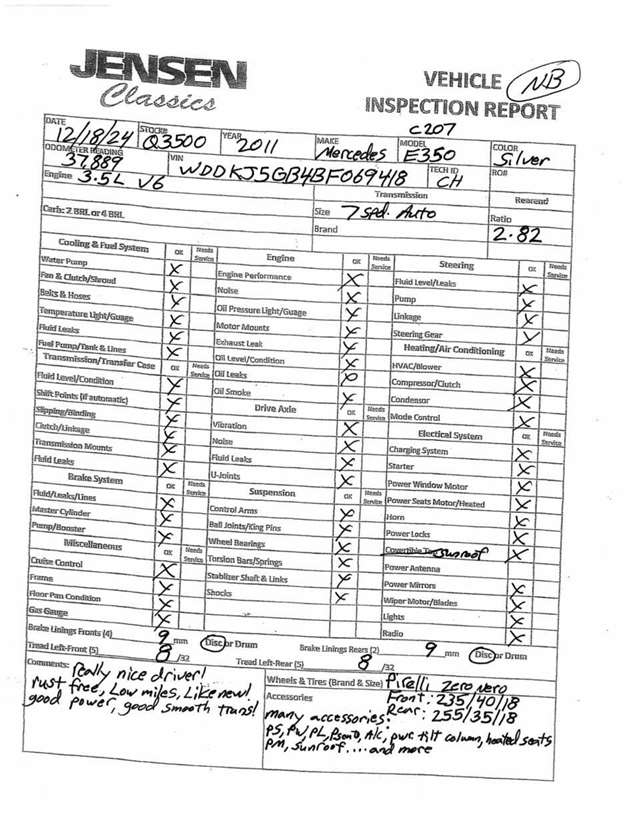 JENSEN
Classics
VEHICLE
INSPECTION REPORT
NB
C207
DATE 12/18/24 STOCK# Q3500 YEAR 2011 MAKE Mercedes MODEL E350 COLOR Silver
ODOMETER READING 37,889 VIN WDDKJ5GB4BF069418 TECH ID CH RO#
Engine 3.5L V6 Transmission Rearend
Carb: 2 BRL or 4 BRL Size 7 spd. Auto Ratio 2.82
Brand
Cooling & Fuel System OK Needs Service
Water Pump X
Fan & Clutch/Shroud X
Belts & Hoses X
Temperature Light/Guage X
Fluid Leaks X
Fuel Pump/Tank & Lines X
Transmission/Transfer Case OK Needs Service
Fluid Level/Condition X
Shift Points (if automatic) X
Slipping/Binding X
Clutch/Linkage X
Transmission Mounts X
Fluid Leaks X
Brake System OK Needs Service
Fluid/Leaks/Lines X
Master Cylinder X
Pump/Booster X
Miscellaneous OK Needs Service
Cruise Control X
Frame X
Floor Pan Condition X
Gas Gauge X
Engine OK Needs Service
Engine Performance X
Noise X
Oil Pressure Light/Guage X
Motor Mounts X
Exhaust Leak X
Oil Level/Condition X
Oil Leaks X
Oil Smoke X
Drive Axle OK Needs Service
Vibration X
Noise X
Fluid Leaks X
U-Joints X
Suspension OK Needs Service
Control Arms X
Ball Joints/King Pins X
Wheel Bearings X
Torsion Bars/Springs X
Stablizer Shaft & Links X
Shocks X
Steering OK Needs Service
Fluid Level/Leaks X
Pump X
Linkage X
Steering Gear X
Heating/Air Conditioning OK Needs Service
HVAC/Blower X
Compressor/Clutch X
Condensor X
Mode Control X
Electical System OK Needs Service
Charging System X
Starter X
Power Window Motor X
Power Seats Motor/Heated X
Horn X
Power Locks X
Covertible Top sunroof X
Power Antenna
Power Mirrors X
Wiper Motor/Blades X
Lights X
Radio X
Brake Linings Fronts (4) 9 mm Disc or Drum Brake Linings Rears (2) 9 mm Disc or Drum
Tread Left-Front (5) 8 /32 Tread Left-Rear (5) 8 /32
Comments: really nice driver!
rust free, Low miles, Like new!
good power, good smooth trans!
Wheels & Tires (Brand & Size) Pirelli Zero Nero
Accessories Front: 235/40/18
Rear: 255/35/18
many accessories:
PS, PW, PL, Pseats, A/c, pwr tilt column, heated seats
PM, sunroof.... and more